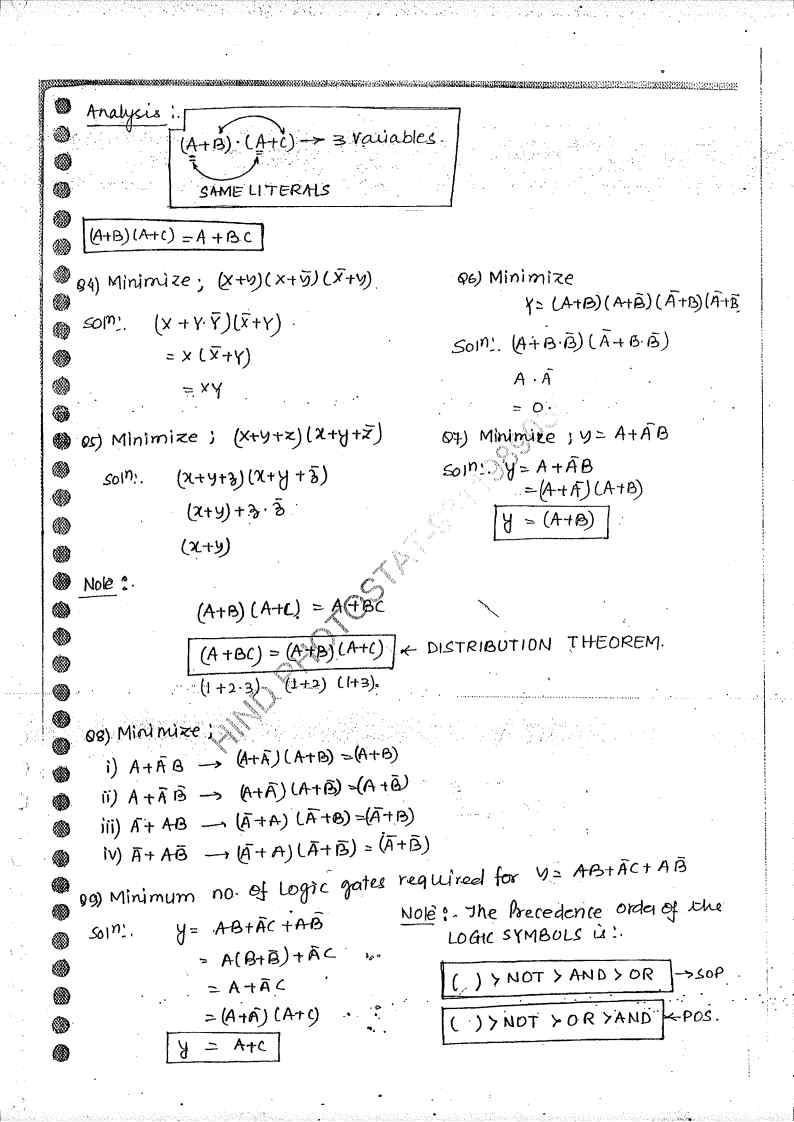 Analysis :.
(A+B)·(A+C) → 3 Variables.
SAME LITERALS
(A+B)(A+C) = A + BC
Q4) Minimize ; (x+y)(x+ȳ)(x̄+y)
Soln:. (x + Y·Ȳ)(x̄+Y) .
= x (x̄+Y)
= XY
Q5) Minimize ; (x+y+z)(x+y+z̄)
Soln:. (x+y+z)(x+y+z̄)
(x+y)+z·z̄
(x+y)
Q6) Minimize
Y= (A+B)(A+B̄)(Ā+B)(Ā+B̄
Soln:. (A+B·B̄)(Ā+B·B̄)
A·Ā
= 0.
Q7) Minimize ; y= A+ĀB
Soln:. y= A+ĀB
=(A+Ā)(A+B)
y = (A+B)
Note :.
(A+B)(A+C) = A+BC
(A+BC) = (A+B)(A+C) ← DISTRIBUTION THEOREM.
(1+2·3) (1+2) (1+3).
Q8) Minimize ;
i) A+ĀB → (A+Ā)(A+B)=(A+B)
ii) A+ĀB̄ → (A+Ā)(A+B̄)=(A+B̄)
iii) Ā+AB → (Ā+A)(Ā+B)=(Ā+B)
iv) Ā+AB̄ → (Ā+A)(Ā+B̄)=(Ā+B̄)
Q9) Minimum no. of Logic gates required for y= AB+ĀC+AB̄
Soln:. y= AB+ĀC+AB̄
= A(B+B̄)+ĀC
= A+ĀC
=(A+Ā)(A+C)
y = A+C
Note :. The Precedence order of the
LOGIC SYMBOLS is :.
( ) > NOT > AND > OR → SOP
( ) > NOT > OR > AND ← POS.
HIND PHOTOSTAT